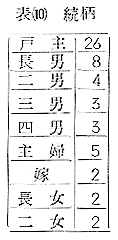 表(10) 続柄
戸主 26
長男 8
二男 4
三男 3
四男 3
主婦 5
嫁 2
長女 2
二女 2